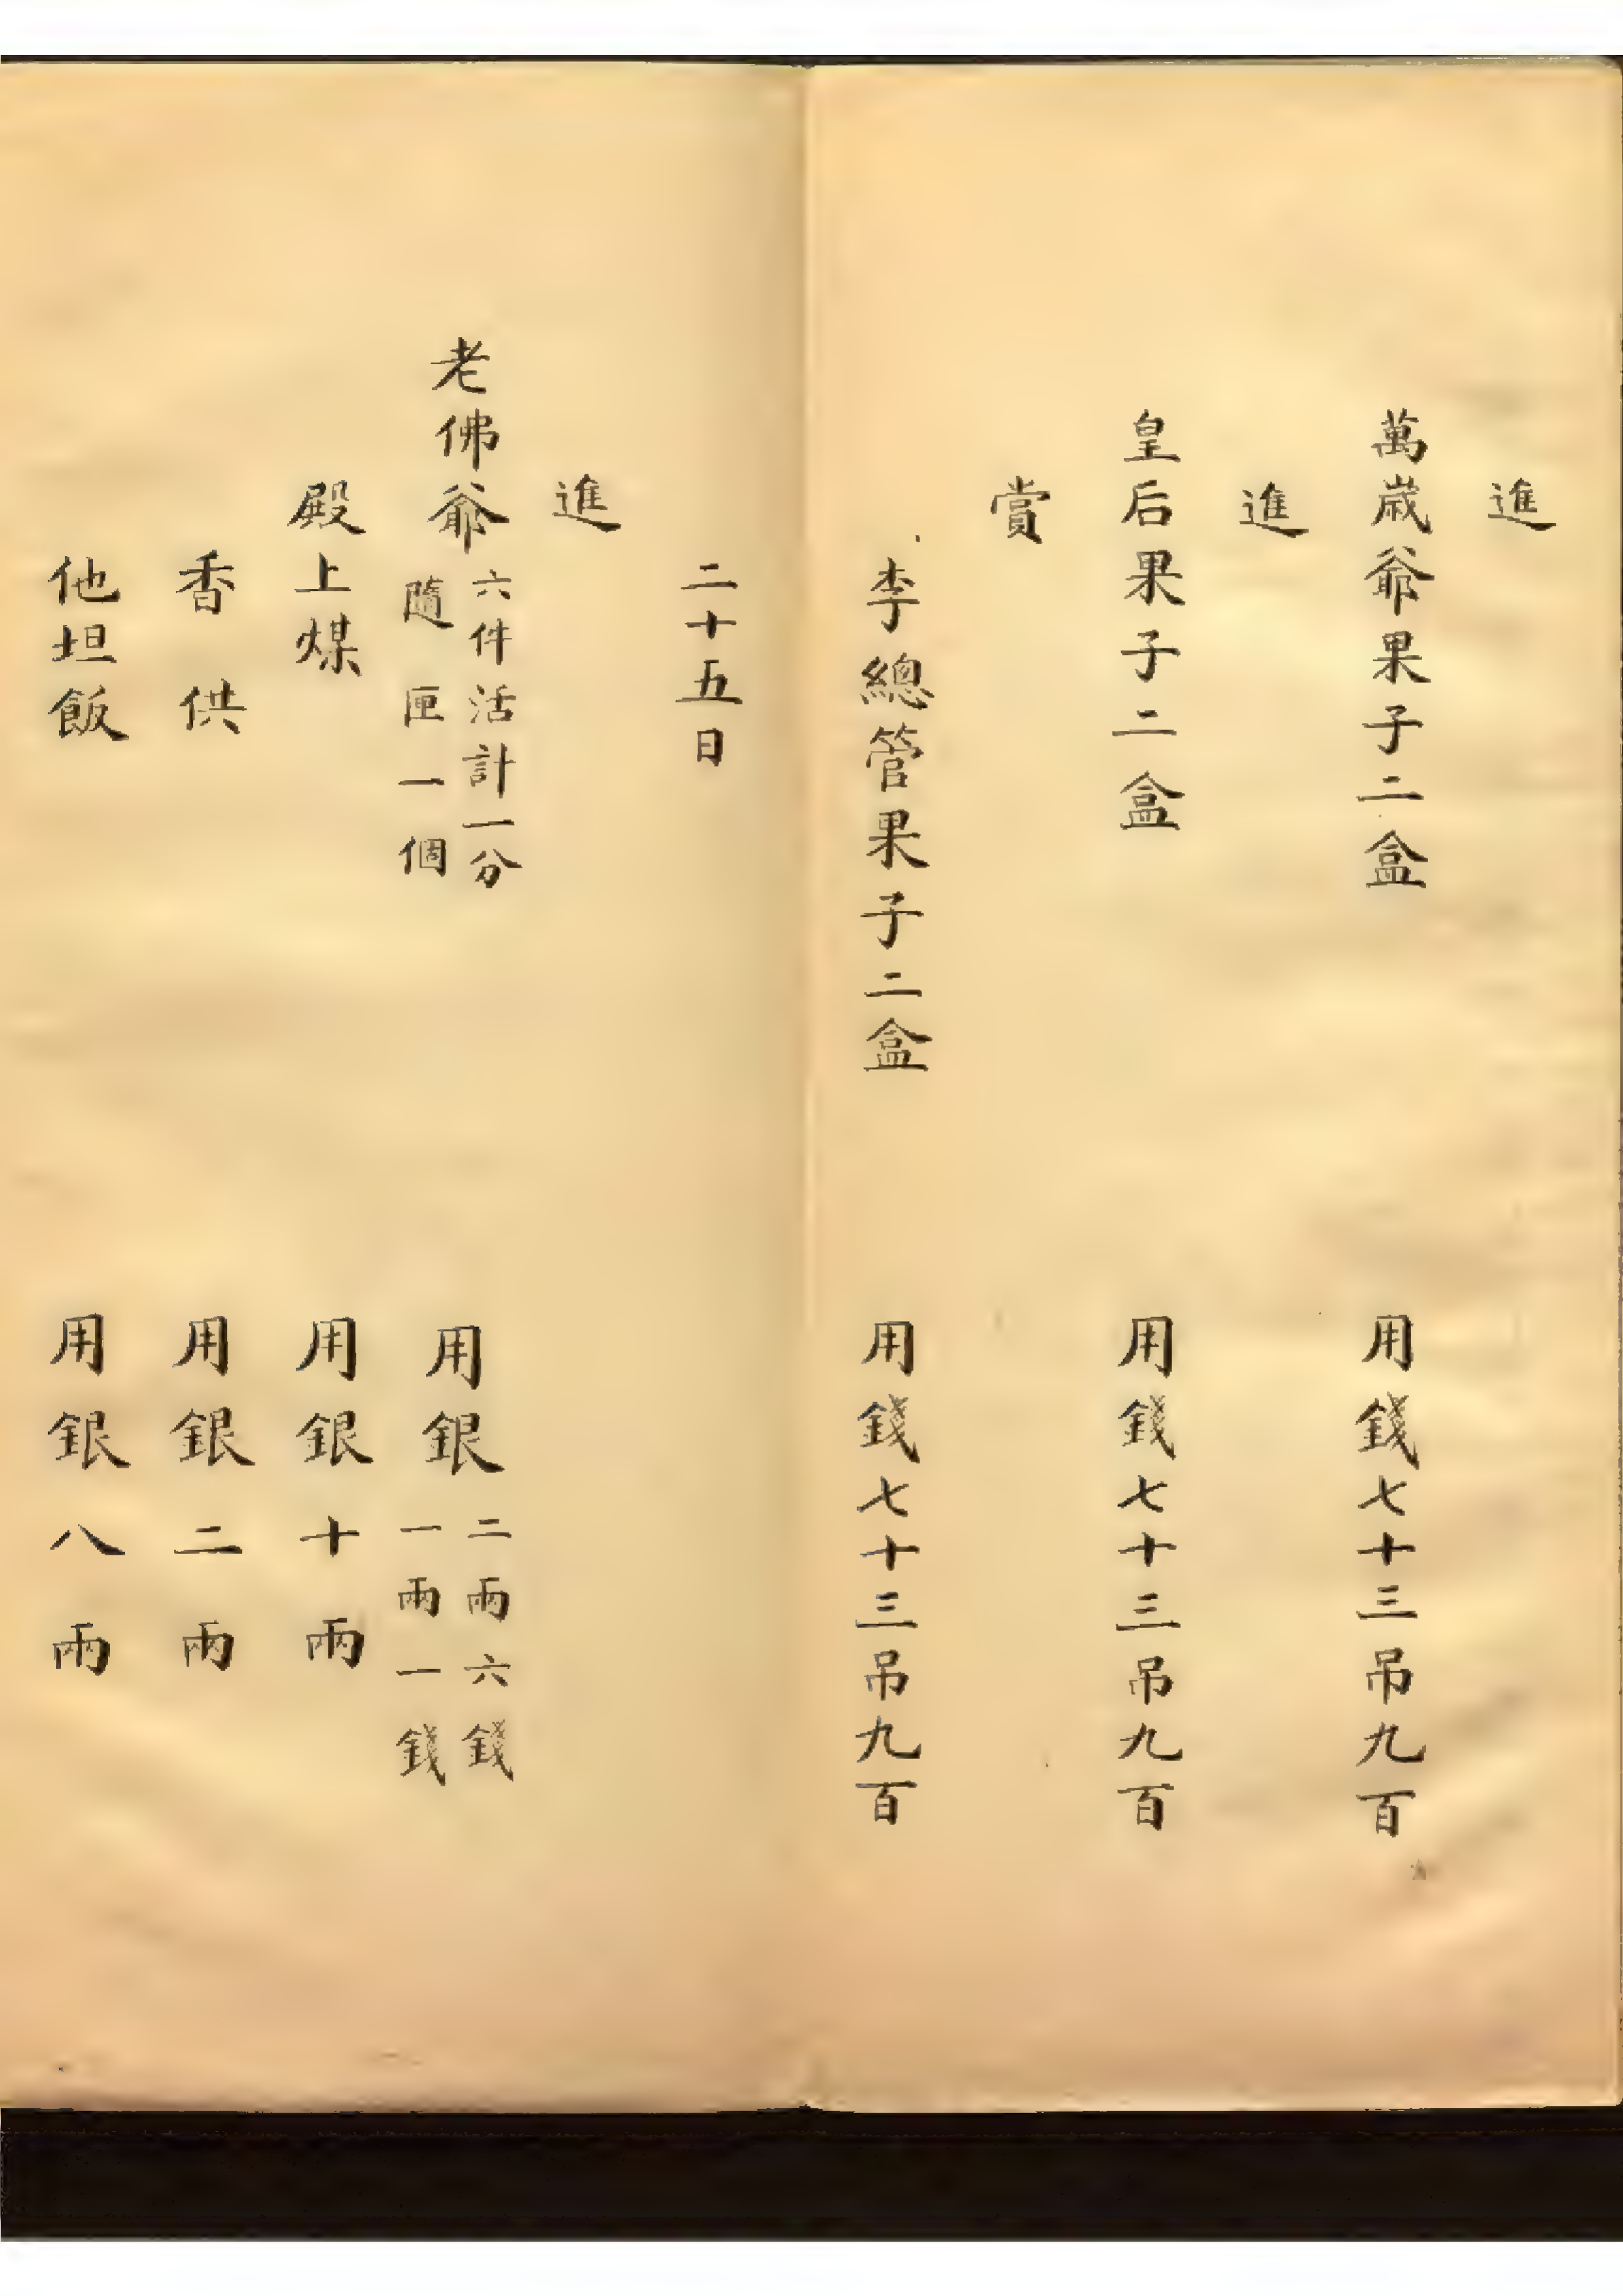 進
萬歲爺果子二盒 用錢七十三吊九百
進
皇后果子二盒 用錢七十三吊九百
賞
李總管果子二盒 用錢七十三吊九百
二十五日
進
老佛爺 六件活計一分 隨匣一個 用銀 二兩六錢 一兩一錢
殿上煤 用銀十兩
香供 用銀二兩
他坦飯 用銀八兩